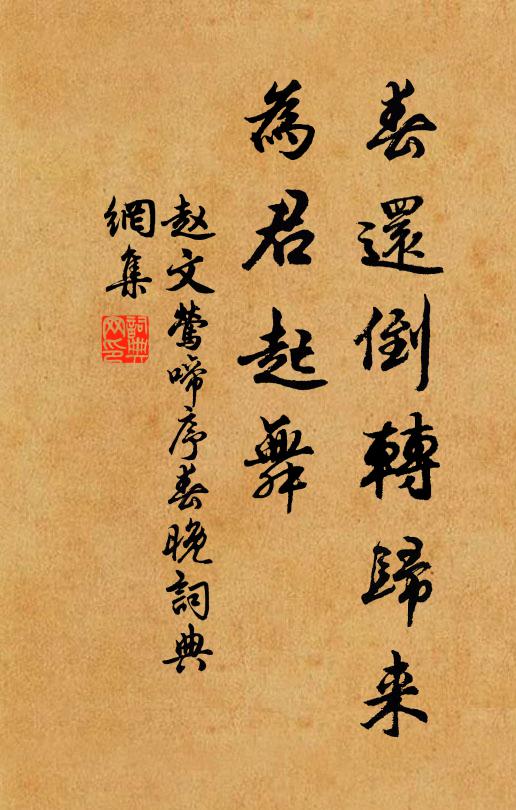 春還倒轉歸来
為君起舞
赵文鶯啼序春晚詞典
網集
詞典
网印